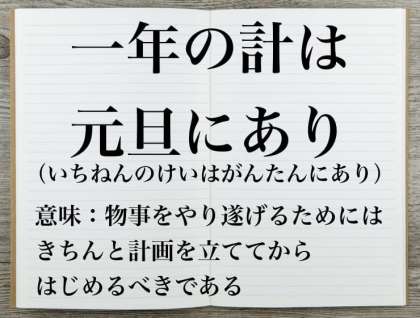 一年の計は
元旦にあり
（いちねんのけいはがんたんにあり）
意味：物事をやり遂げるためには
きちんと計画を立ててから
はじめるべきである